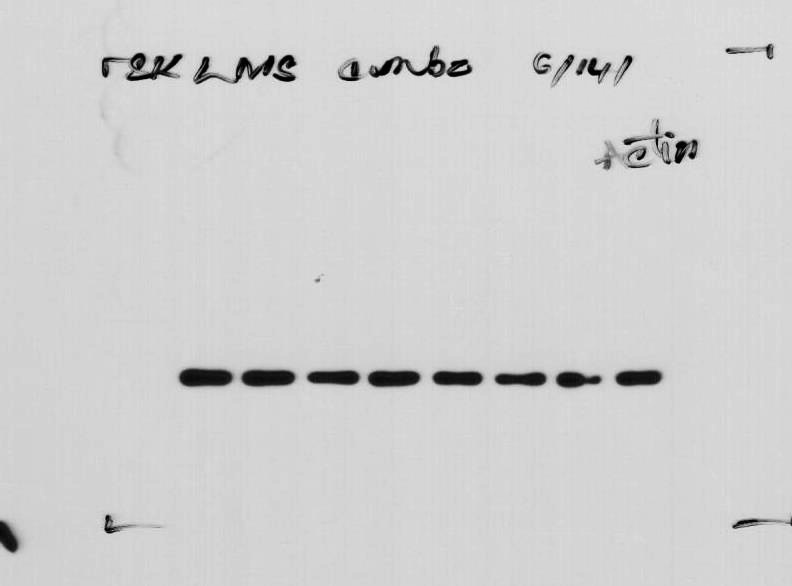 LMS combo 6/14/
Actin